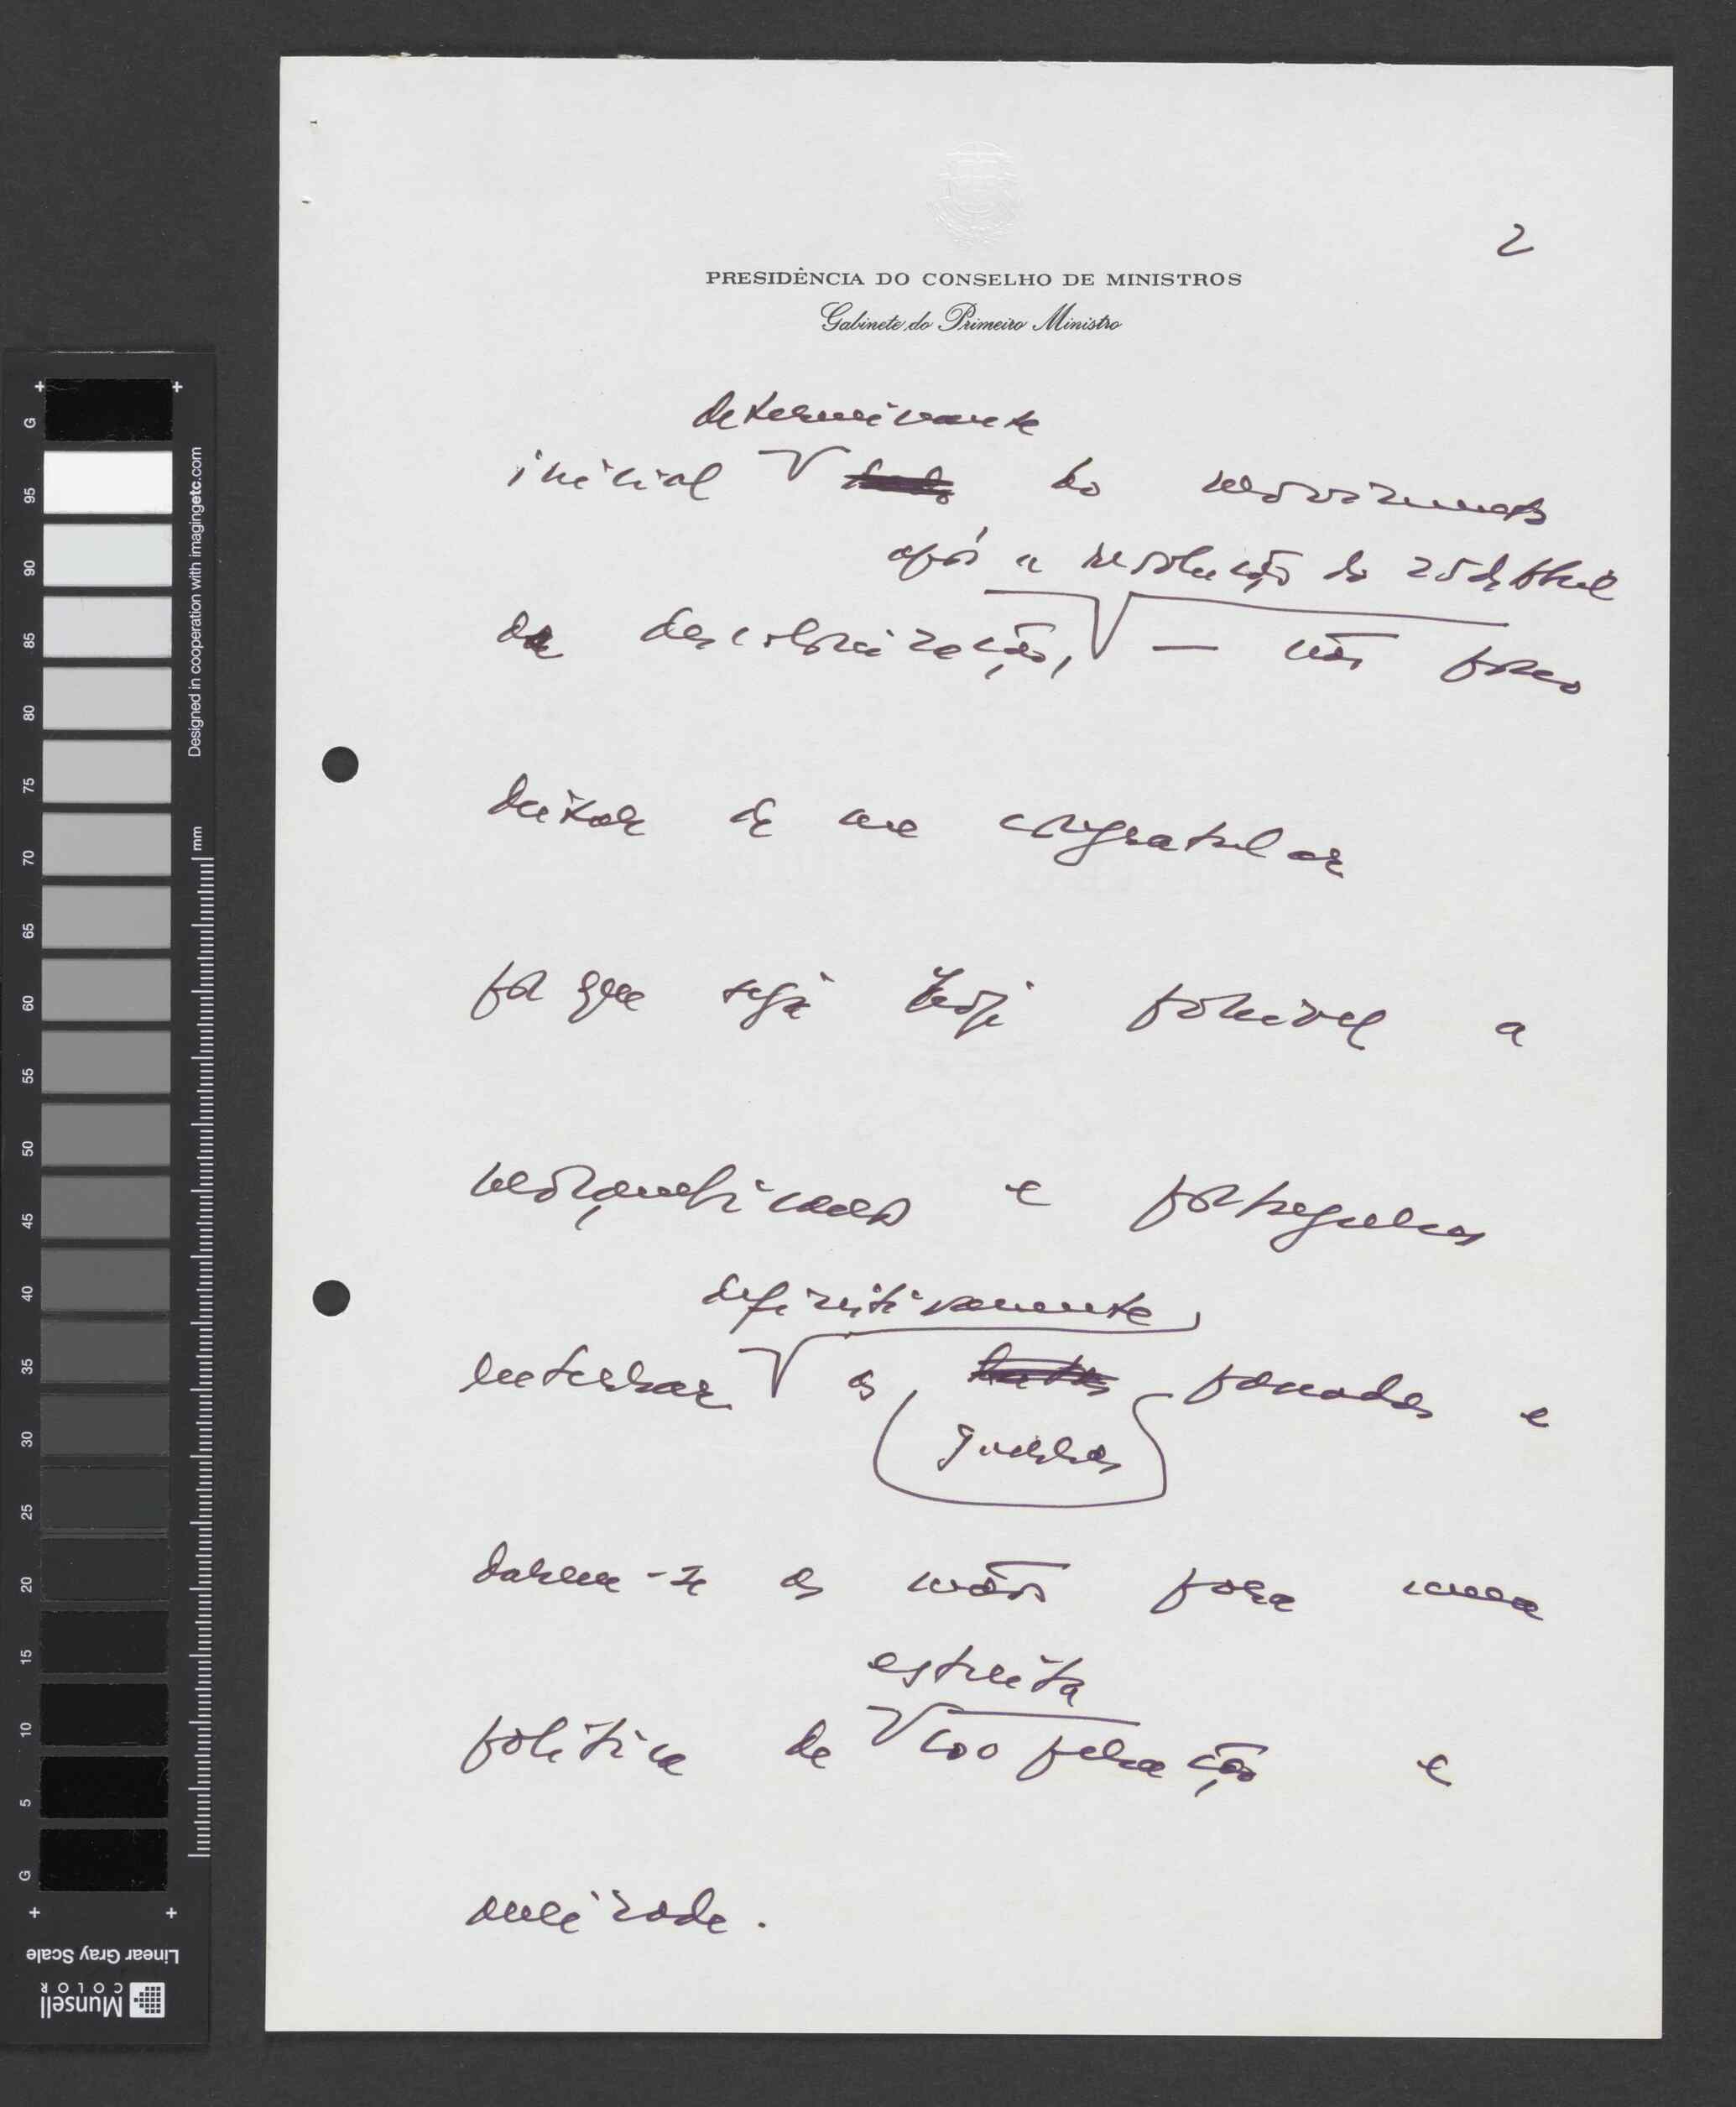 2
PRESIDÊNCIA DO CONSELHO DE MINISTROS
Gabinete do Primeiro Ministro
determinante
inicial do movimento
após a revolução do 25 de Abril
da descolonização, — não posso
deixar de me congratular
por que seja hoje possível a
moçambicanos e portugueses
definitivamente
enterrar as passadas e
guerras
darem-se as mãos para uma
estreita
política de cooperação e
amizade.
G
95
90
85
80
75
70
65
60
55
50
45
40
35
30
25
20
15
10
5
G
mm
Designed in cooperation with imagingetc.com
Linear Gray Scale
Munsell
COLOR